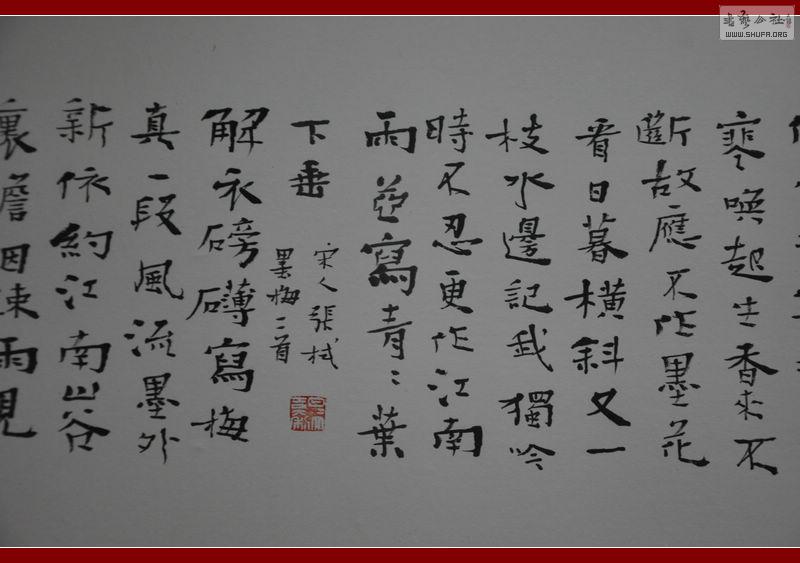 寒喚起生香來不
斷故應不作墨花
看日暮橫斜又一
枝水邊記我獨吟
時不忍更作江南
雨並寫青〻葉
下垂
宋人張栻
墨梅二首
解衣磅礴寫梅
真一段風流墨外
新依約江南山谷
裏雨見
書藝公社
WWW.SHUFA.ORG